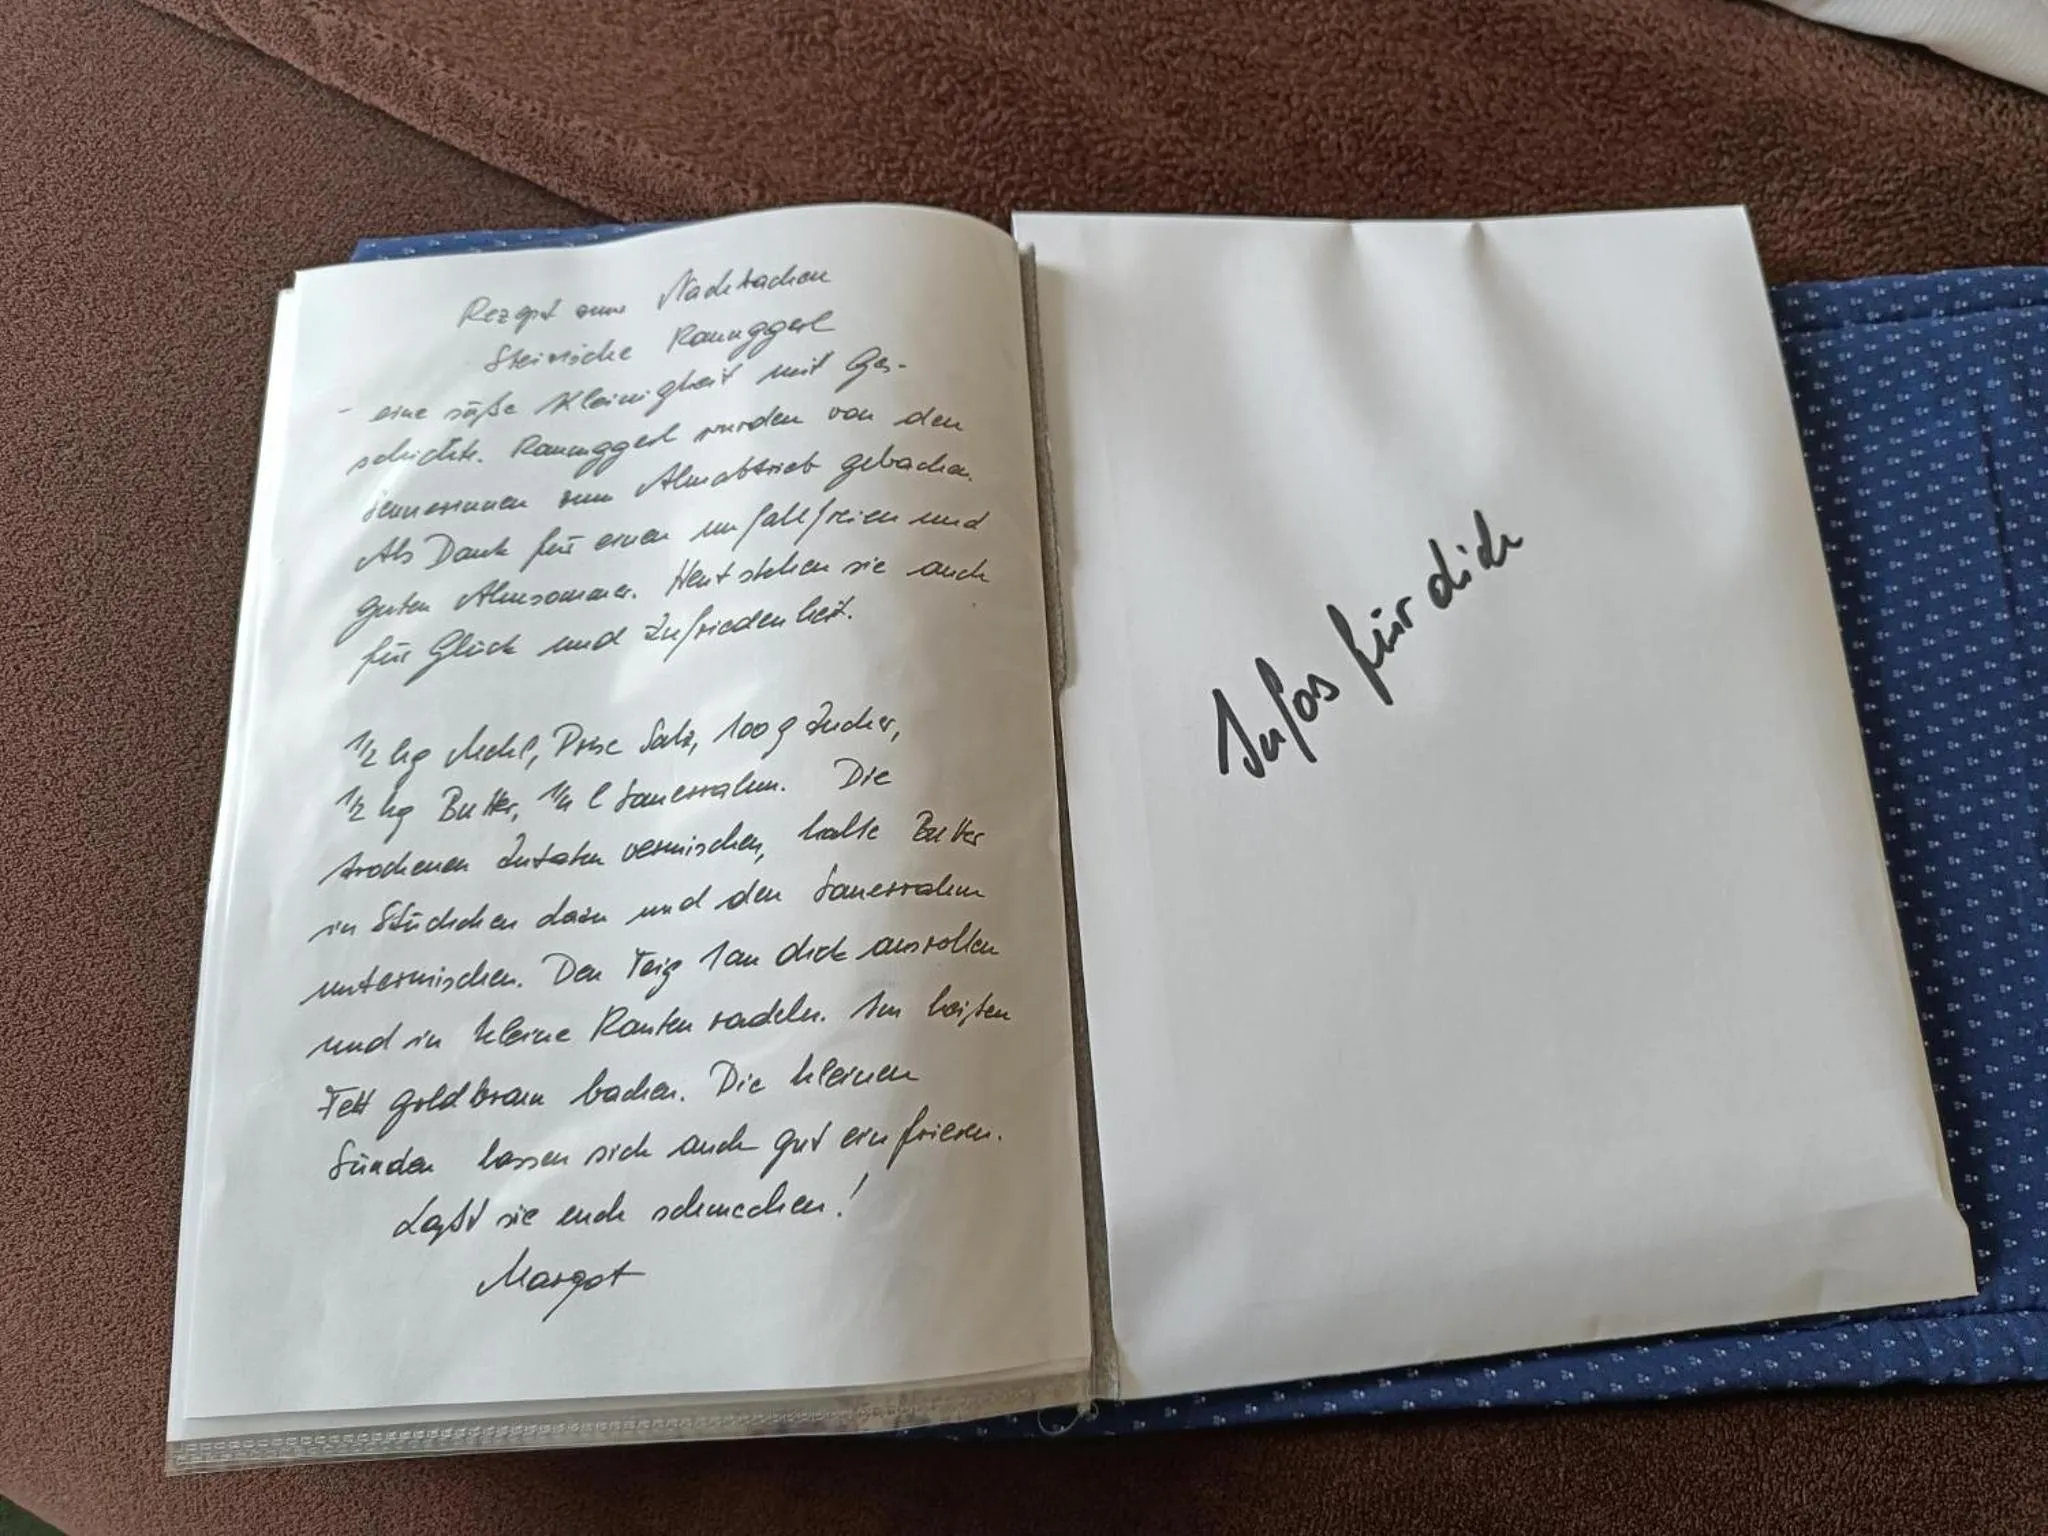 Rezept zum Nachbacken
Steirische Raunggerl
- eine süße Kleinigkeit mit Ge-
schichte. Raunggerl wurden von den
Sennerinnen zum Almabtrieb gebacken.
Als Dank für einen unfallfreien und
guten Almsommer. Heut stehen sie auch
für Glück und Zufriedenheit.
1/2 kg Mehl, Prise Salz, 100 g Zucker,
1/2 kg Butter, 1/4 l Sauerrahm. Die
trockenen Zutaten vermischen, kalte Butter
in Stückchen dazu und den Sauerrahm
untermischen. Den Teig 1 cm dick ausrollen
und in kleine Rauten radeln. Im heißen
Fett goldbraun backen. Die kleinen
Sünden lassen sich auch gut einfrieren.
Laßt sie euch schmecken!
Margot
Infos für dich